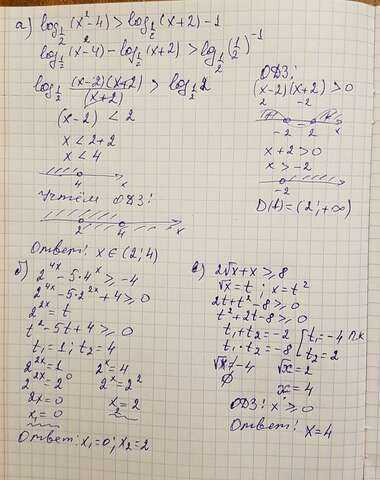 а) log_{1/2}(x²-4) > log_{1/2}(x+2) - 1
log_{1/2}(x²-4) - log_{1/2}(x+2) > log_{1/2}(1/2)^{-1}
log_{1/2} (x-2)(x+2)/(x+2) > log_{1/2} 2
(x-2) < 2
x < 2+2
x < 4
4 x
Учтём ОДЗ:
2 4 x
Ответ: x ∈ (2; 4)
ОДЗ:
(x-2)(x+2) > 0
2 -2
-2 2 x
x+2 > 0
x > -2
-2
D(f) = (2; +∞)
б) 2^{4x} - 5·4^x ≥ -4
2^{4x} - 5·2^{2x} + 4 ≥ 0
2^{2x} = t
t² - 5t + 4 ≥ 0
t₁ = 1; t₂ = 4
2^{2x} = 1 2^x = 4
2^{2x} = 2^0 2^x = 2²
2x = 0 x = 2
x₁ = 0
Ответ: x₁ = 0; x₂ = 2
в) 2√x + x ≥ 8
√x = t; x = t²
2t + t² - 8 ≥ 0
t² + 2t - 8 ≥ 0
t₁ + t₂ = -2 [ t₁ = -4 п.к
t₁ · t₂ = -8 t₂ = 2
√x ≠ -4 √x = 2
∅ x = 4
ОДЗ: x ≥ 0
Ответ: x = 4